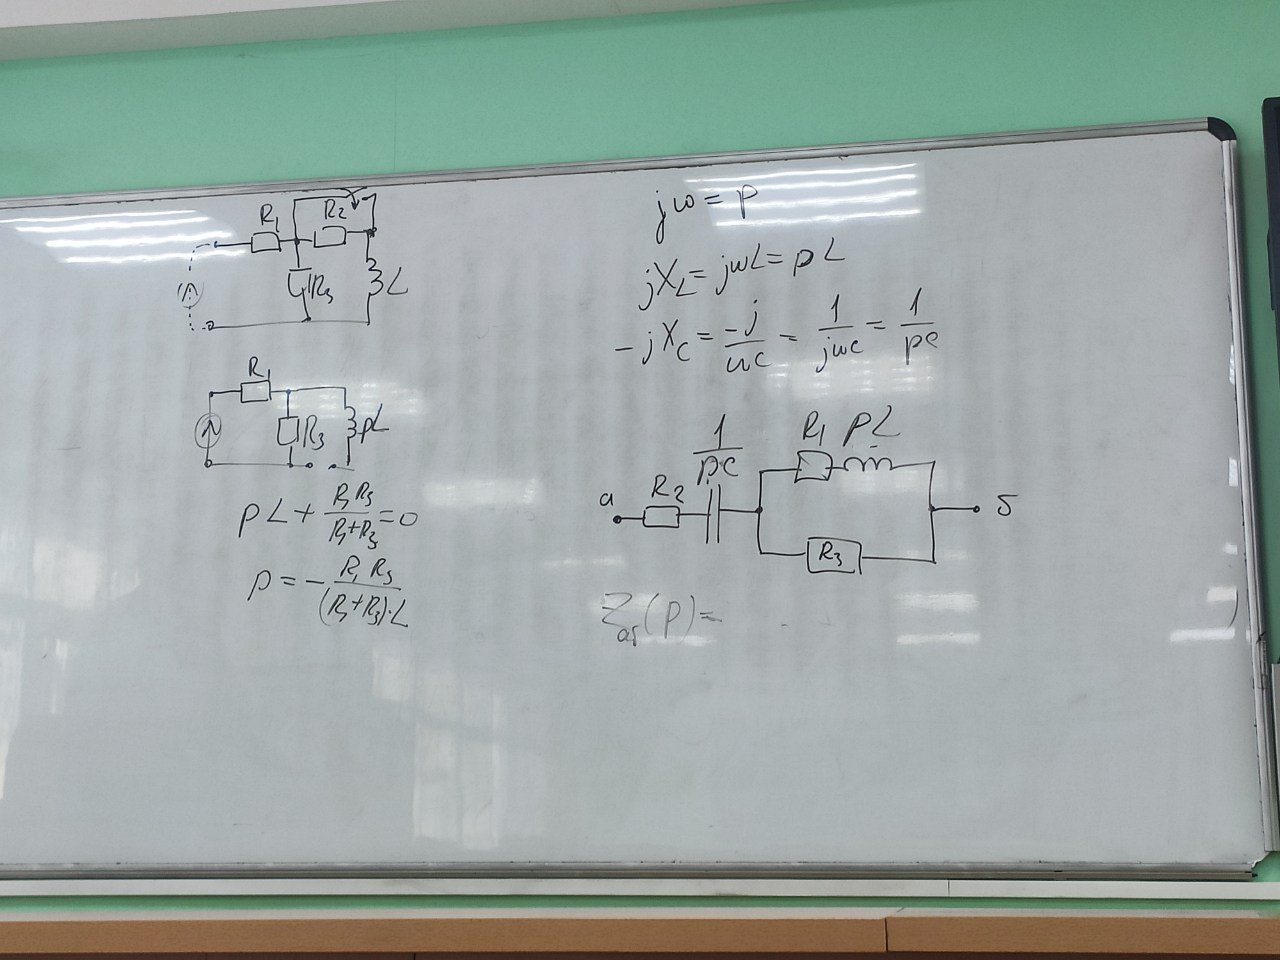 R₁
R₂
R₃
L
R₁
R₃
pL
pL + R₁R₃/(R₁+R₃) = 0
p = - R₁R₃/((R₁+R₃)·L)
jω = p
jX_L = jωL = pL
-jX_C = -j/ωC = 1/jωC = 1/pC
1/pC
R₁ pL
a R₂
б
R₃
Z_аб(p) =